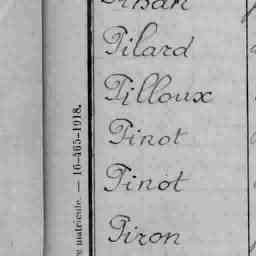 Pilard
Pilloux
Pinot
Pinot
Piron
matricule. — 16-465-1918.